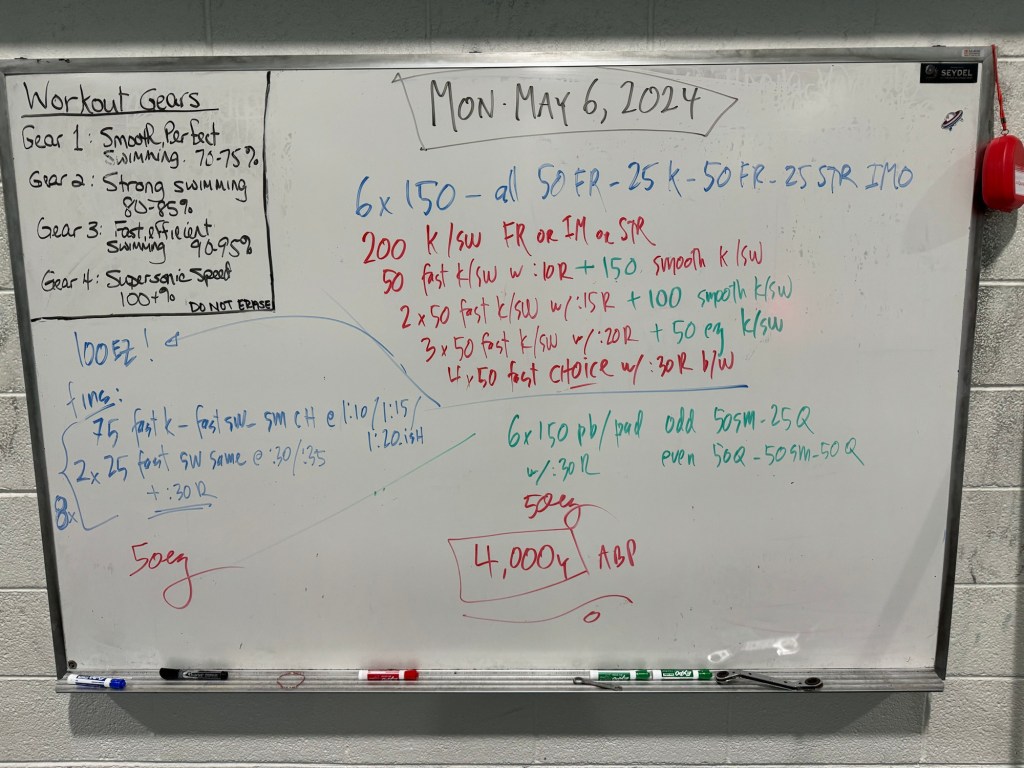 Workout Gears
Gear 1: Smooth, Perfect
Swimming. 70-75%
Gear 2: Strong swimming
80-85%
Gear 3: Fast, efficient
Swimming 90-95%
Gear 4: Supersonic Speed
100+%
DO NOT ERASE
MON. MAY 6, 2024
SEYDEL
6 x 150 - all 50 FR - 25 K - 50 FR - 25 STR IMO
200 K/SW FR or IM or STR
50 fast k/sw w :10R + 150 smooth k/sw
2 x 50 fast k/sw w/:15R + 100 smooth k/sw
3 x 50 fast k/sw w/:20R + 50 ez k/sw
4 x 50 fast CHOICE w/:30R b/w
100 EZ!
fins:
75 fast k - fast sw - sm CH @ 1:10/1:15/
1:20.ish
2 x 25 fast sw same @ :30/:35
+ :30R
8x
50ez
6 x 150 pb/pad odd 50sm - 25Q
w/:30R even 50Q - 50sm - 50Q
50ez
4,000y ABP
EXPO